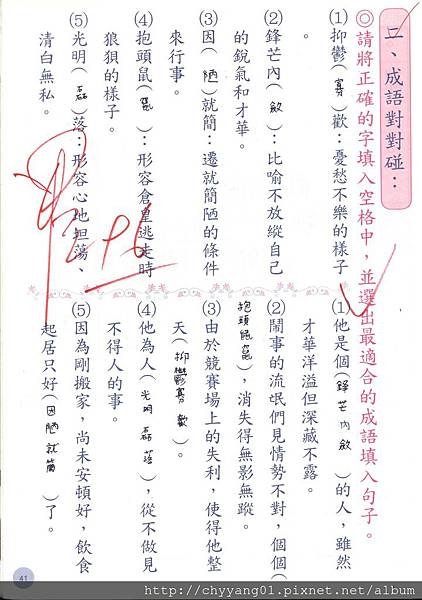 二、成語對對碰：
◎請將正確的字填入空格中，並選出最適合的成語填入句子。
(1)抑鬱(寡)歡：憂愁不樂的樣子
。
(2)鋒芒內(斂)：比喻不放縱自己
的銳氣和才華。
(3)因(陋)就簡：遷就簡陋的條件
來行事。
(4)抱頭鼠(竄)：形容倉皇逃走時
狼狽的樣子。
(5)光明(磊)落：形容心地坦蕩、
清白無私。
(1)他是個(鋒芒內斂)的人，雖然
才華洋溢但深藏不露。
(2)鬧事的流氓們見情勢不對，個個(
抱頭鼠竄)，消失得無影無蹤。
(3)由於競賽場上的失利，使得他整
天(抑鬱寡歡)。
(4)他為人(光明磊落)，從不做見
不得人的事。
(5)因為剛搬家，尚未安頓好，飲食
起居只好(因陋就簡)了。
41
http://chyyang01.pixnet.net/album